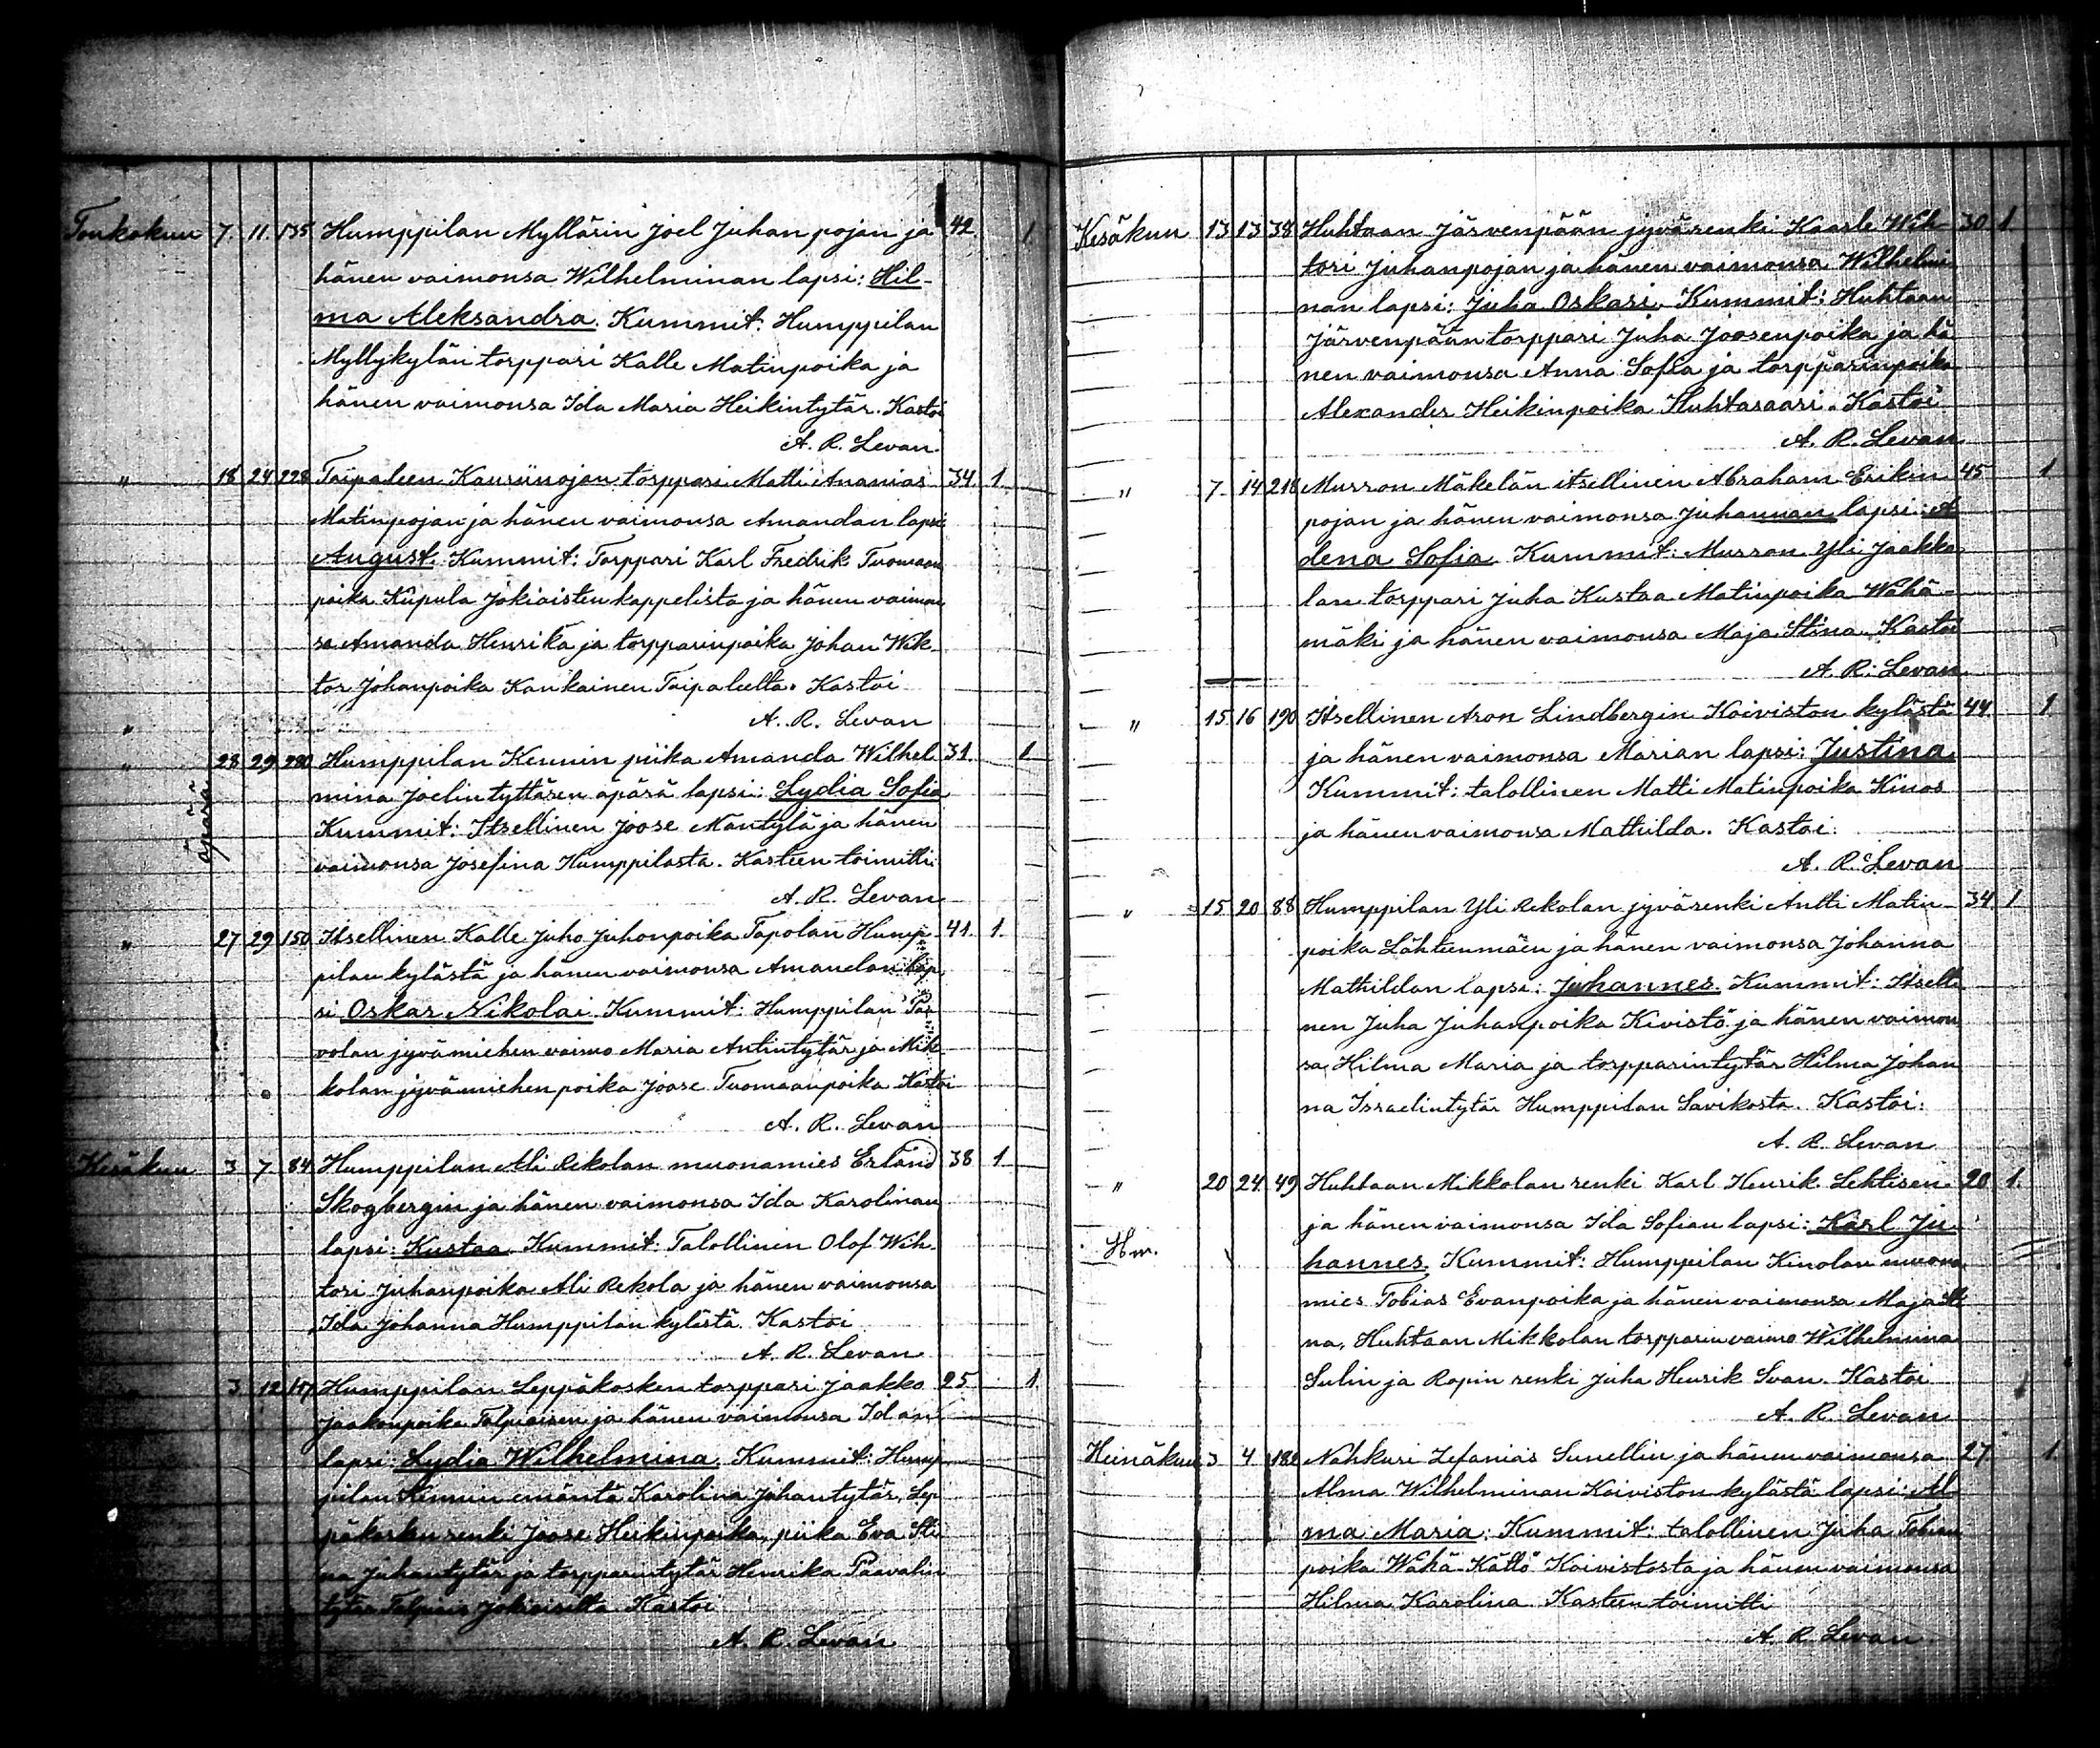 Toukokuu 7. 11. 135 Humppilan Myllärin Joel Juhan pojan ja 42. 1
hänen vaimonsa Wilhelminan lapsi: Hil-
ma Aleksandra. Kummit: Humppilan
Myllykylän torppari Kalle Matinpoika ja
hänen vaimonsa Ida Maria Heikintytär. Kastoi
A. R. Levan
" 18 24 228 Taipaleen Kauriinojan torppari Matti Ananias 34. 1
Matinpojan ja hänen vaimonsa Amandan lapsi
August. Kummit: Torppari Karl Fredrik Tuomaan
poika Kupula Jokioisten kappelista ja hänen vaimon
sa Amanda Henrika ja torpparinpoika Johan Wik-
tor Johanpoika Kankainen Taipaleelta. Kastoi
" A. R. Levan
" 28 29 280 Humppilan Kennin piika Amanda Wilhel 31. 1
äpärä mina Joelintyttären äpärä lapsi: Lydia Sofia
Kummit: Itsellinen Joose Mäntylä ja hänen
vaimonsa Josefina Humppilasta. Kasteen toimitti
A. R. Levan
" 27 29 150 Itsellinen Kalle Juho Juhonpoika Tapolan Hump- 41. 1.
pilan kylästä ja hänen vaimonsa Amandan lap
si Oskar Nikolai. Kummit: Humppilan Paa
volan jyvämiehen vaimo Maria Antintytär ja Mik
kolan jyvämiehen poika Joose Tuomaanpoika Kastoi
A. R. Levan
Kesäkuu 3 7 84 Humppilan Ali Rekolan muonamies Erland 38 1
Skogbergin ja hänen vaimonsa Ida Karolinan
lapsi: Kustaa. Kummit: Talollinen Olof Wih-
tori Juhanpoika Ali Rekola ja hänen vaimonsa
Ida Johanna Humppilan kylästä. Kastoi
A. R. Levan
3 12 117 Humppilan Leppäkosken torppari Jaakko 25 1
Jaakonpoika Talpiaisen ja hänen vaimonsa Idan
lapsi: Lydia Wilhelmina. Kummit: Hump
pilan Kennin emäntä Karolina Juhantytär, Lep
päkosken renki Joose Heikinpoika, piika Eva Sti
na Juhantytär ja torpparintytär Henrika Paavalin
tytär Jokioisilta Kastoi
A. R. Levan
Kesäkuu 13 13 38 Huhtaan Järvenpään jyvärenki Kaarle Wih- 30 1
tori Juhanpojan ja hänen vaimonsa Wilhelmi
nan lapsi: Juha Oskari. Kummit: Huhtaan
Järvenpään torppari Juha Joosenpoika ja hä
nen vaimonsa Anna Sofia ja torpparinpoika
Alexander Heikinpoika Huhtasaari. Kastoi
A. R. Levan
" 7. 14 218 Murron Mäkelän itsellinen Abraham Erikin 45 1
pojan ja hänen vaimonsa Juhannan lapsi: A
dena Sofia. Kummit: Murron Yli Jaakko
lan torppari Juha Kustaa Matinpoika Wähä-
mäki ja hänen vaimonsa Maja Stina. Kastoi
A. R. Levan
" 15 16 190 Itsellinen Aron Lindbergin Koiviston kylästä 44. 1
ja hänen vaimonsa Marian lapsi: Justina.
Kummit: talollinen Matti Matinpoika Kinos
ja hänen vaimonsa Mathilda. Kastoi:
A. R. Levan
" 15 20 88 Humppilan Yli Rekolan jyvärenki Antti Matin- 34. 1
poika Lähteenmäen ja hänen vaimonsa Johanna
Mathildan lapsi: Johannes. Kummit: Itselli
nen Juha Juhanpoika Kivistö ja hänen vaimon
sa Hilma Maria ja torpparintytär Hilma Johan
na Israelintytär Humppilan Savikosta. Kastoi:
A. R. Levan
" 20 24. 49 Huhtaan Mikkolan renki Karl Henrik Lehtisen 20 1.
ja hänen vaimonsa Ida Sofian lapsi: Karl Ju
Hm. hannes. Kummit: Humppilan Kinolan muona
mies Tobias Evanpoika ja hänen vaimonsa Maja Sti
na, Huhtaan Mikkolan torpparin vaimo Wilhelmina
Sulin ja Ropin renki Juha Henrik Svan. Kastoi
A. R. Levan
Heinäkuu 3 4 182 Nahkuri Zefanias Sunellin ja hänen vaimonsa 27. 1
Alma Wilhelminan Koiviston kylästä lapsi: Al
ma Maria. Kummit: talollinen Juha Tobian
poika Wähä-Kättö Koivistosta ja hänen vaimonsa
Hilma Karolina. Kasteen toimitti
A. R. Levan